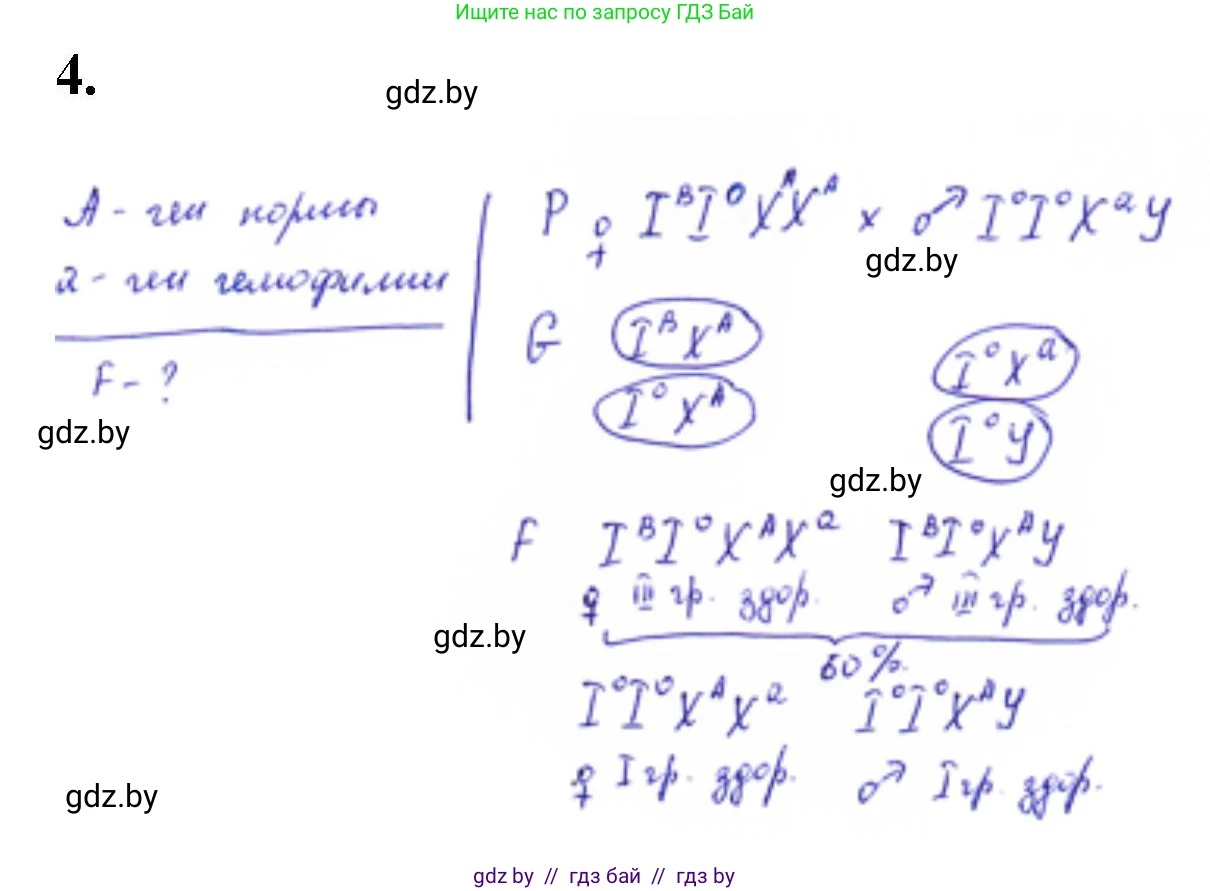 Ищите нас по запросу ГДЗ Бай
4.
gdz.by
A - ген нормы
a - ген гемофилии
F - ?
P ♀ IᴮI⁰XᴬXᴬ x ♂ I⁰I⁰XᵃY
gdz.by
G IᴮXᴬ I⁰Xᵃ
I⁰Xᴬ I⁰Y
gdz.by
gdz.by
F IᴮI⁰XᴬXᵃ IᴮI⁰XᴬY
♀ III гр. здор. ♂ III гр. здор.
gdz.by
50%.
I⁰I⁰XᴬXᵃ I⁰I⁰XᴬY
♀ I гр. здор. ♂ I гр. здор.
gdz.by
gdz by // гдз бай // гдз by